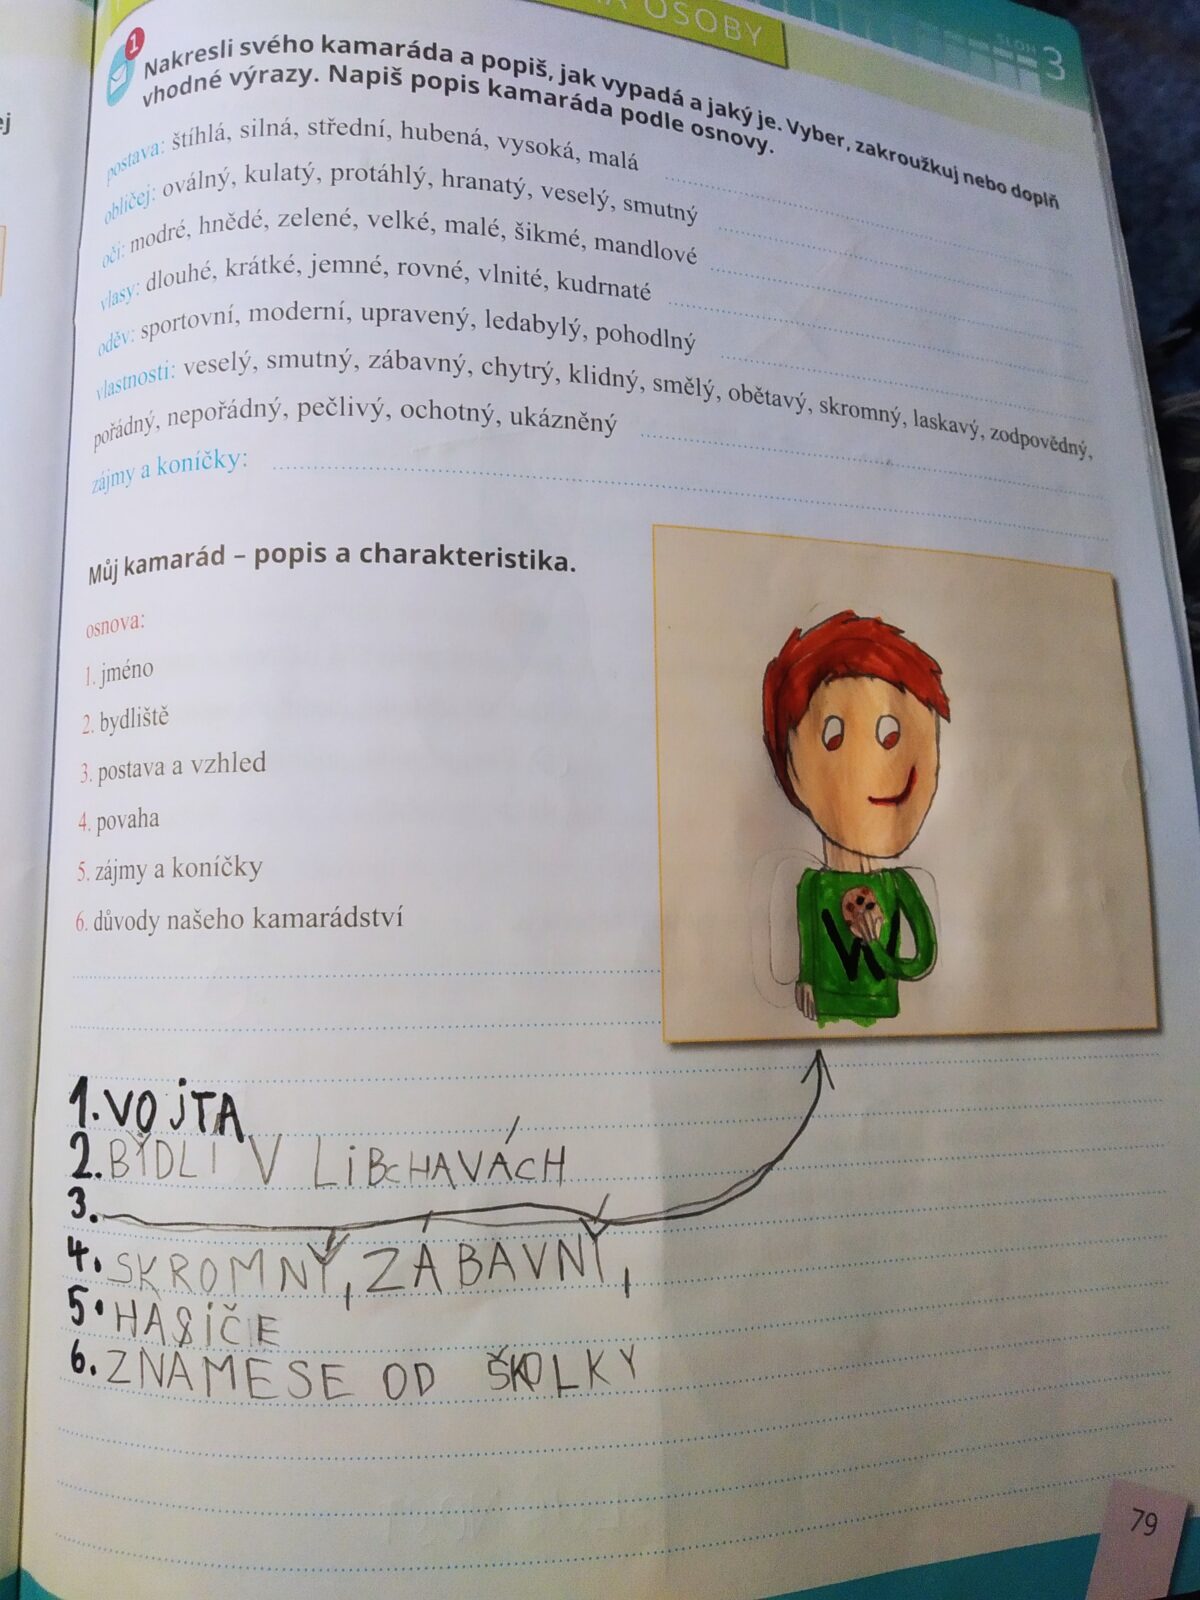 OSOBY
SLOH 3
1 Nakresli svého kamaráda a popiš, jak vypadá a jaký je. Vyber, zakroužkuj nebo doplň
vhodné výrazy. Napiš popis kamaráda podle osnovy.
postava: štíhlá, silná, střední, hubená, vysoká, malá
obličej: oválný, kulatý, protáhlý, hranatý, veselý, smutný
oči: modré, hnědé, zelené, velké, malé, šikmé, mandlové
vlasy: dlouhé, krátké, jemné, rovné, vlnité, kudrnaté
oděv: sportovní, moderní, upravený, ledabylý, pohodlný
vlastnosti: veselý, smutný, zábavný, chytrý, klidný, smělý, obětavý, skromný, laskavý, zodpovědný,
pořádný, nepořádný, pečlivý, ochotný, ukázněný
zájmy a koníčky:
Můj kamarád – popis a charakteristika.
osnova:
1. jméno
2. bydliště
3. postava a vzhled
4. povaha
5. zájmy a koníčky
6. důvody našeho kamarádství
1. VOJTA
2. BÝDLI V LIBCHAVÁCH
3.
4. SKROMNÝ, ZÁBAVNÝ,
5. HASIČE
6. ZNAMESE OD ŠKOLKY
79